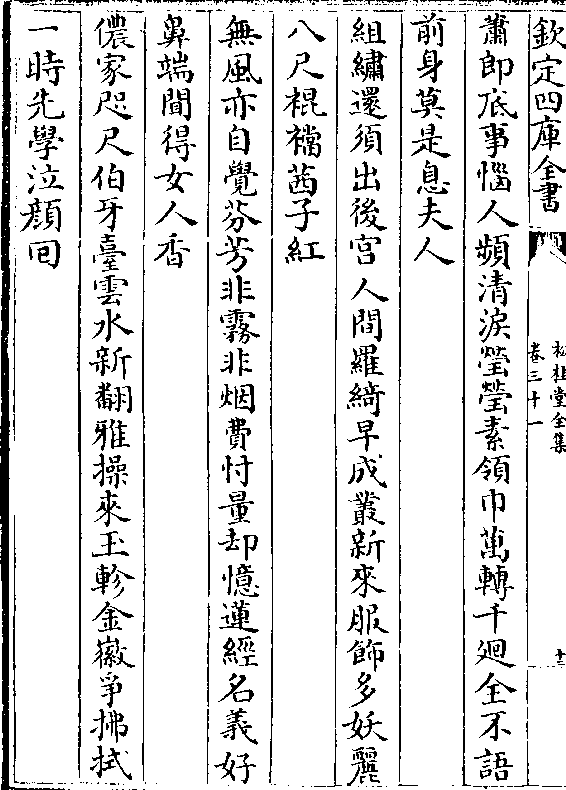 欽定四庫全書
松桂堂全集
卷三十一
十三
蕭郎底事惱人頻清淚瑩瑩素領巾萬轉千迴全不語
前身莫是息夫人
組繡還須出後宫人間羅綺早成叢新來服飾多妖麗
八尺裩襠茜子紅
無風亦自覺芬芳非霧非烟費忖量却憶蓮經名義好
鼻端聞得女人香
儂家咫尺伯牙臺雲水新翻雅操來玉軫金徽爭拂拭
一時先學泣顔回